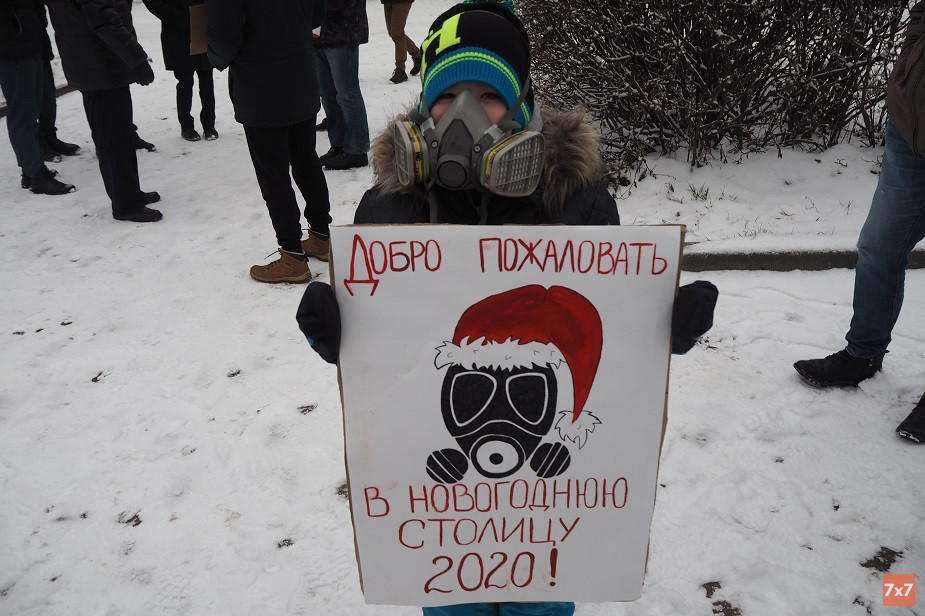 ДОБРО ПОЖАЛОВАТЬ
В НОВОГОДНЮЮ
СТОЛИЦУ
2020!
7x7